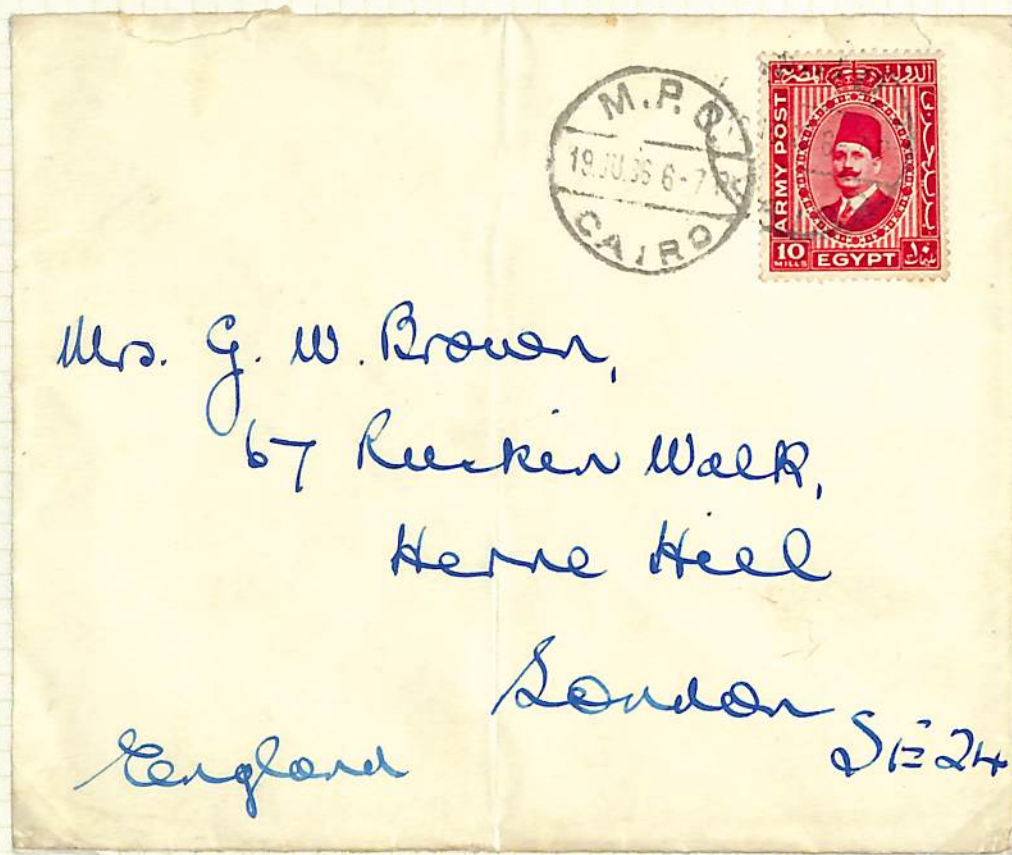 M.P.O.
19.JU.36 6-7
CAIRO
الدولة المصرية
ARMY POST
10
MILLS
EGYPT
١٠
مليمات
Mrs. G. W. Brown,
67 Ruskin Walk,
Herne Hill
London
SE24
England